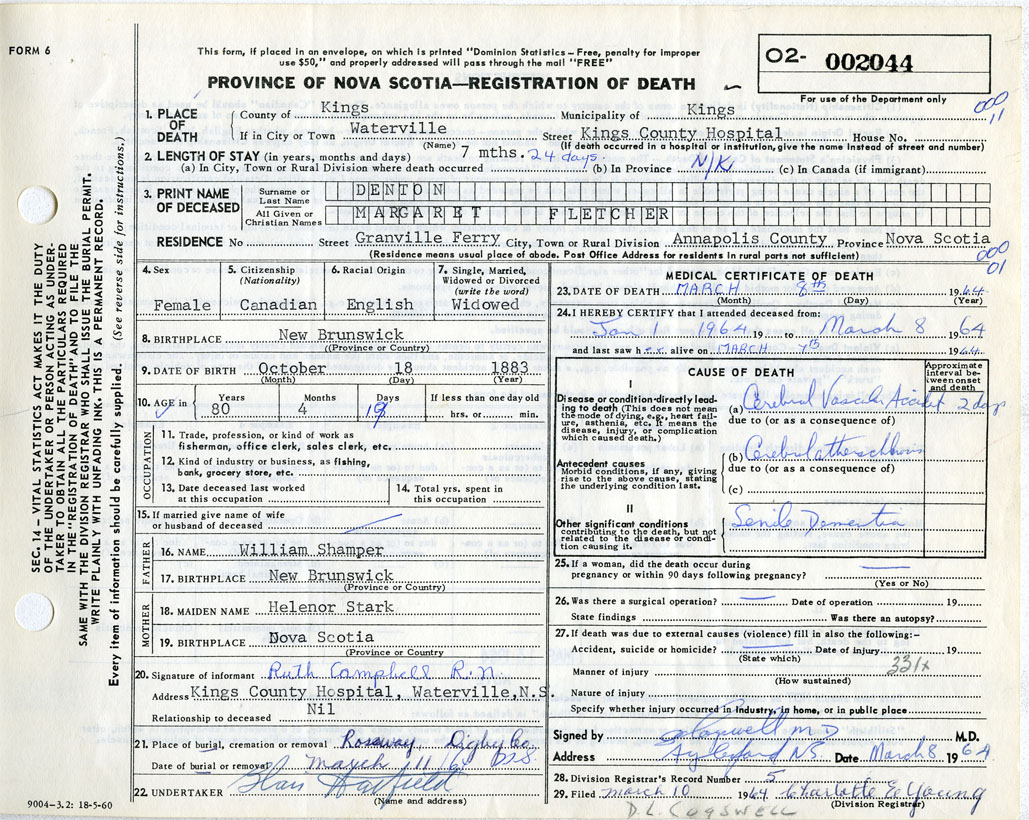 FORM 6
This form, if placed in an envelope, on which is printed "Dominion Statistics – Free, penalty for improper
use $50," and properly addressed will pass through the mail "FREE"
PROVINCE OF NOVA SCOTIA—REGISTRATION OF DEATH
O2- 002044
For use of the Department only
000
11
1. PLACE OF DEATH
County of Kings Municipality of Kings
If in City or Town Waterville Street Kings County Hospital House No.
(Name) (If death occurred in a hospital or institution, give the name instead of street and number)
2. LENGTH OF STAY (in years, months and days) 7 mths. 24 days.
(a) In City, Town or Rural Division where death occurred (b) In Province N/K (c) In Canada (if immigrant)
3. PRINT NAME OF DECEASED
Surname or Last Name DENTON
All Given or Christian Names MARGARET FLETCHER
RESIDENCE No Street Granville Ferry City, Town or Rural Division Annapolis County Province Nova Scotia
(Residence means usual place of abode. Post Office Address for residents in rural parts not sufficient)
000
01
4. Sex
Female
5. Citizenship
(Nationality)
Canadian
6. Racial Origin
English
7. Single, Married,
Widowed or Divorced
(write the word)
Widowed
8. BIRTHPLACE New Brunswick
(Province or Country)
9. DATE OF BIRTH October 18 1883
(Month) (Day) (Year)
10. AGE in Years Months Days If less than one day old
80 4 19 hrs. or min.
OCCUPATION
11. Trade, profession, or kind of work as
fisherman, office clerk, sales clerk, etc.
12. Kind of industry or business, as fishing,
bank, grocery store, etc.
13. Date deceased last worked
at this occupation
14. Total yrs. spent in
this occupation
15. If married give name of wife
or husband of deceased
FATHER
16. NAME William Shamper
17. BIRTHPLACE New Brunswick
(Province or Country)
MOTHER
18. MAIDEN NAME Helenor Stark
19. BIRTHPLACE Nova Scotia
(Province or Country
20. Signature of informant Ruth Campbell R.N.
Address Kings County Hospital, Waterville, N.S.
Relationship to deceased Nil
21. Place of burial, cremation or removal Rossway, Digby Co.
Date of burial or removal March 11/64
22. UNDERTAKER Blair Hatfield
(Name and address)
MEDICAL CERTIFICATE OF DEATH
23. DATE OF DEATH MARCH 8th 1964
(Month) (Day) (Year)
24. I HEREBY CERTIFY that I attended deceased from:
Jan 1 1964 19 to March 8 1964
and last saw her alive on MARCH 7th 1964
CAUSE OF DEATH
Approximate
interval be-
tween onset
and death
I
Disease or condition directly lead-
ing to death (This does not mean
the mode of dying, e.g., heart fail-
ure, asthenia, etc. It means the
disease, injury, or complication
which caused death.)
(a) Cerebral Vascular Accident 2 days
due to (or as a consequence of)
Antecedent causes
Morbid conditions, if any, giving
rise to the above cause, stating
the underlying condition last.
(b) Cerebral
due to (or as a consequence of)
(c)
II
Other significant conditions
contributing to the death, but not
related to the disease or condi-
tion causing it.
Senile Dementia
25. If a woman, did the death occur during
pregnancy or within 90 days following pregnancy?
(Yes or No)
26. Was there a surgical operation? Date of operation 19
State findings Was there an autopsy?
27. If death was due to external causes (violence) fill in also the following:–
Accident, suicide or homicide? Date of injury 19
(State which)
331x
Manner of injury
(How sustained)
Nature of injury
Specify whether injury occurred in industry, in home, or in public place
Signed by M D M.D.
Address Aylesford NS Date March 8 1964
28. Division Registrar's Record Number 5
29. Filed March 10 1964 Charlotte E Young
(Division Registrar)
D.L. COGSWELL
9004–3.2: 18-5-60
SEC. 14 – VITAL STATISTICS ACT MAKES IT THE DUTY
OF THE UNDERTAKER OR PERSON ACTING AS UNDER-
TAKER TO OBTAIN ALL THE PARTICULARS REQUIRED
IN THE "REGISTRATION OF DEATH" AND TO FILE THE
SAME WITH THE DIVISION REGISTRAR WHO SHALL ISSUE THE BURIAL PERMIT.
WRITE PLAINLY WITH UNFADING INK. THIS IS A PERMANENT RECORD.
Every item of information should be carefully supplied. (See reverse side for instructions.)